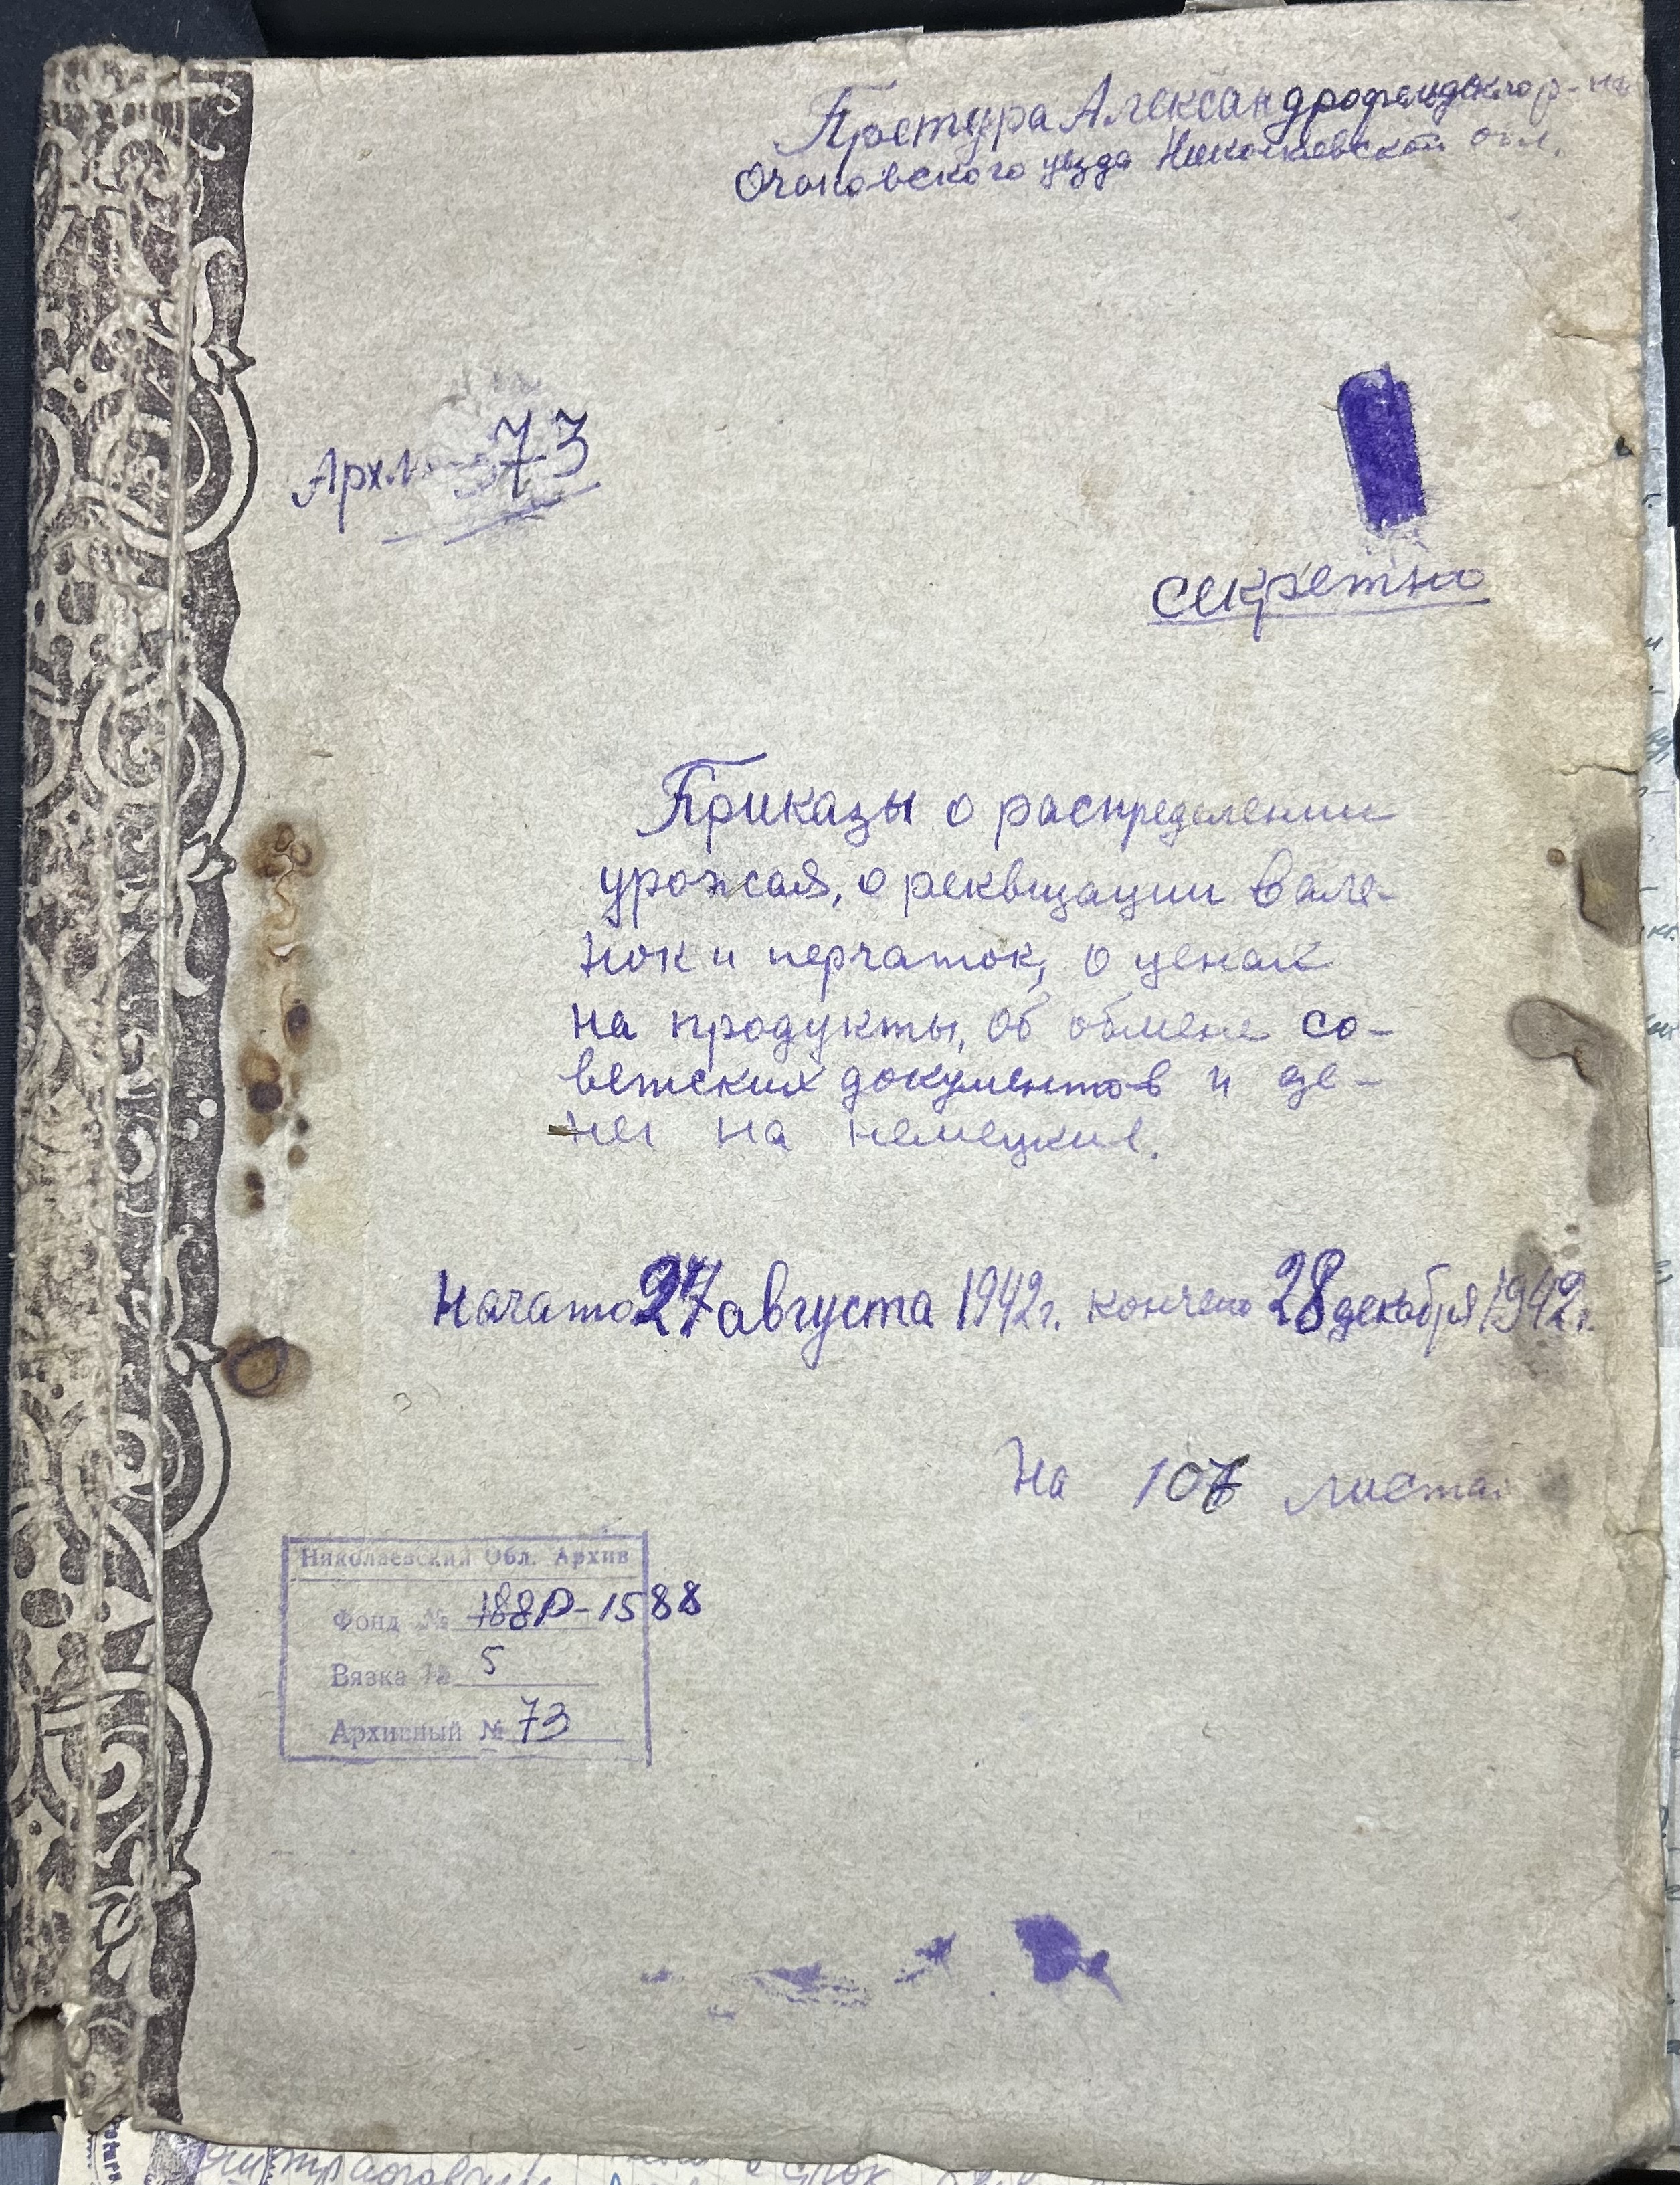 Претура Александрофельдского р-на
Очаковского уезда Николаевской обл.
Арх. 73
секретно
Приказы о распределении
урожая, о реквизации вале-
нок и перчаток, о ценах
на продукты, об обмене со-
ветских документов и де-
нег на немецкие.
Начато 27 августа 1942г. кончено 28 декабря 1942г.
На 107 листах
Николаевский Обл. Архив
Фонд № 188 Р-1588
Вязка № 5
Архивный № 73